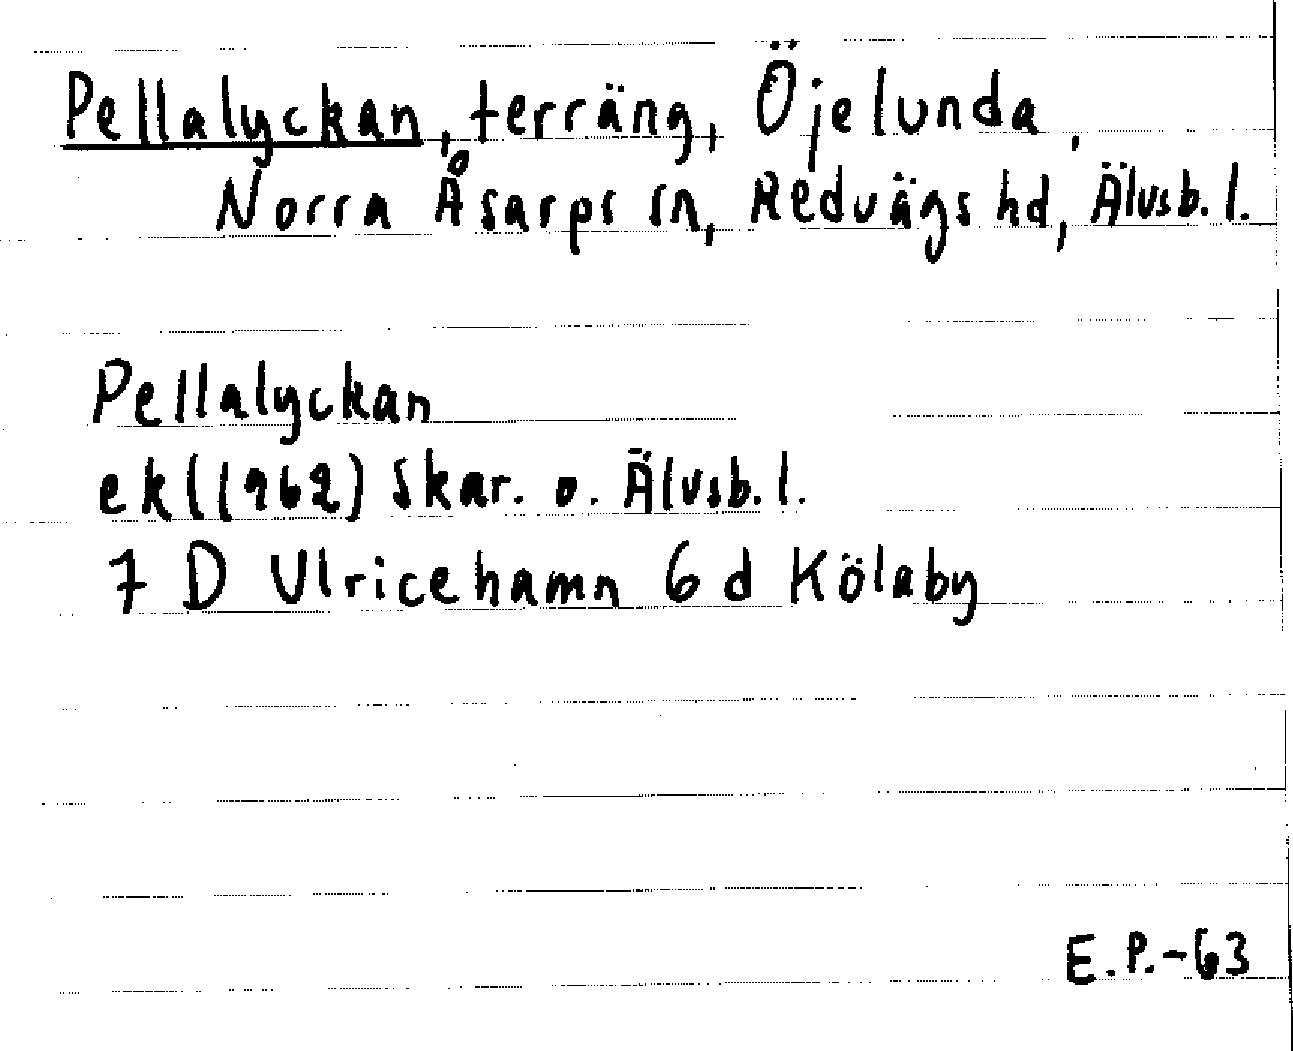 Pellalyckan, terräng, Öjelunda,
Norra Åsarps sn, Redvägs hd, Älvsb. l.
Pellalyckan
ekl (1962) Skar. o. Älvsb. l.
7 D Ulricehamn 6 d Kölaby
E.P.-63